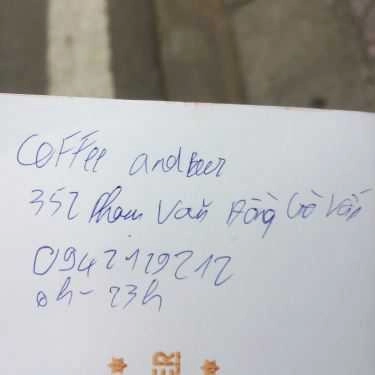 Coffee and beer
352 Phạm Văn Đồng Gò Vấp
0942129212
0h - 23h
ER